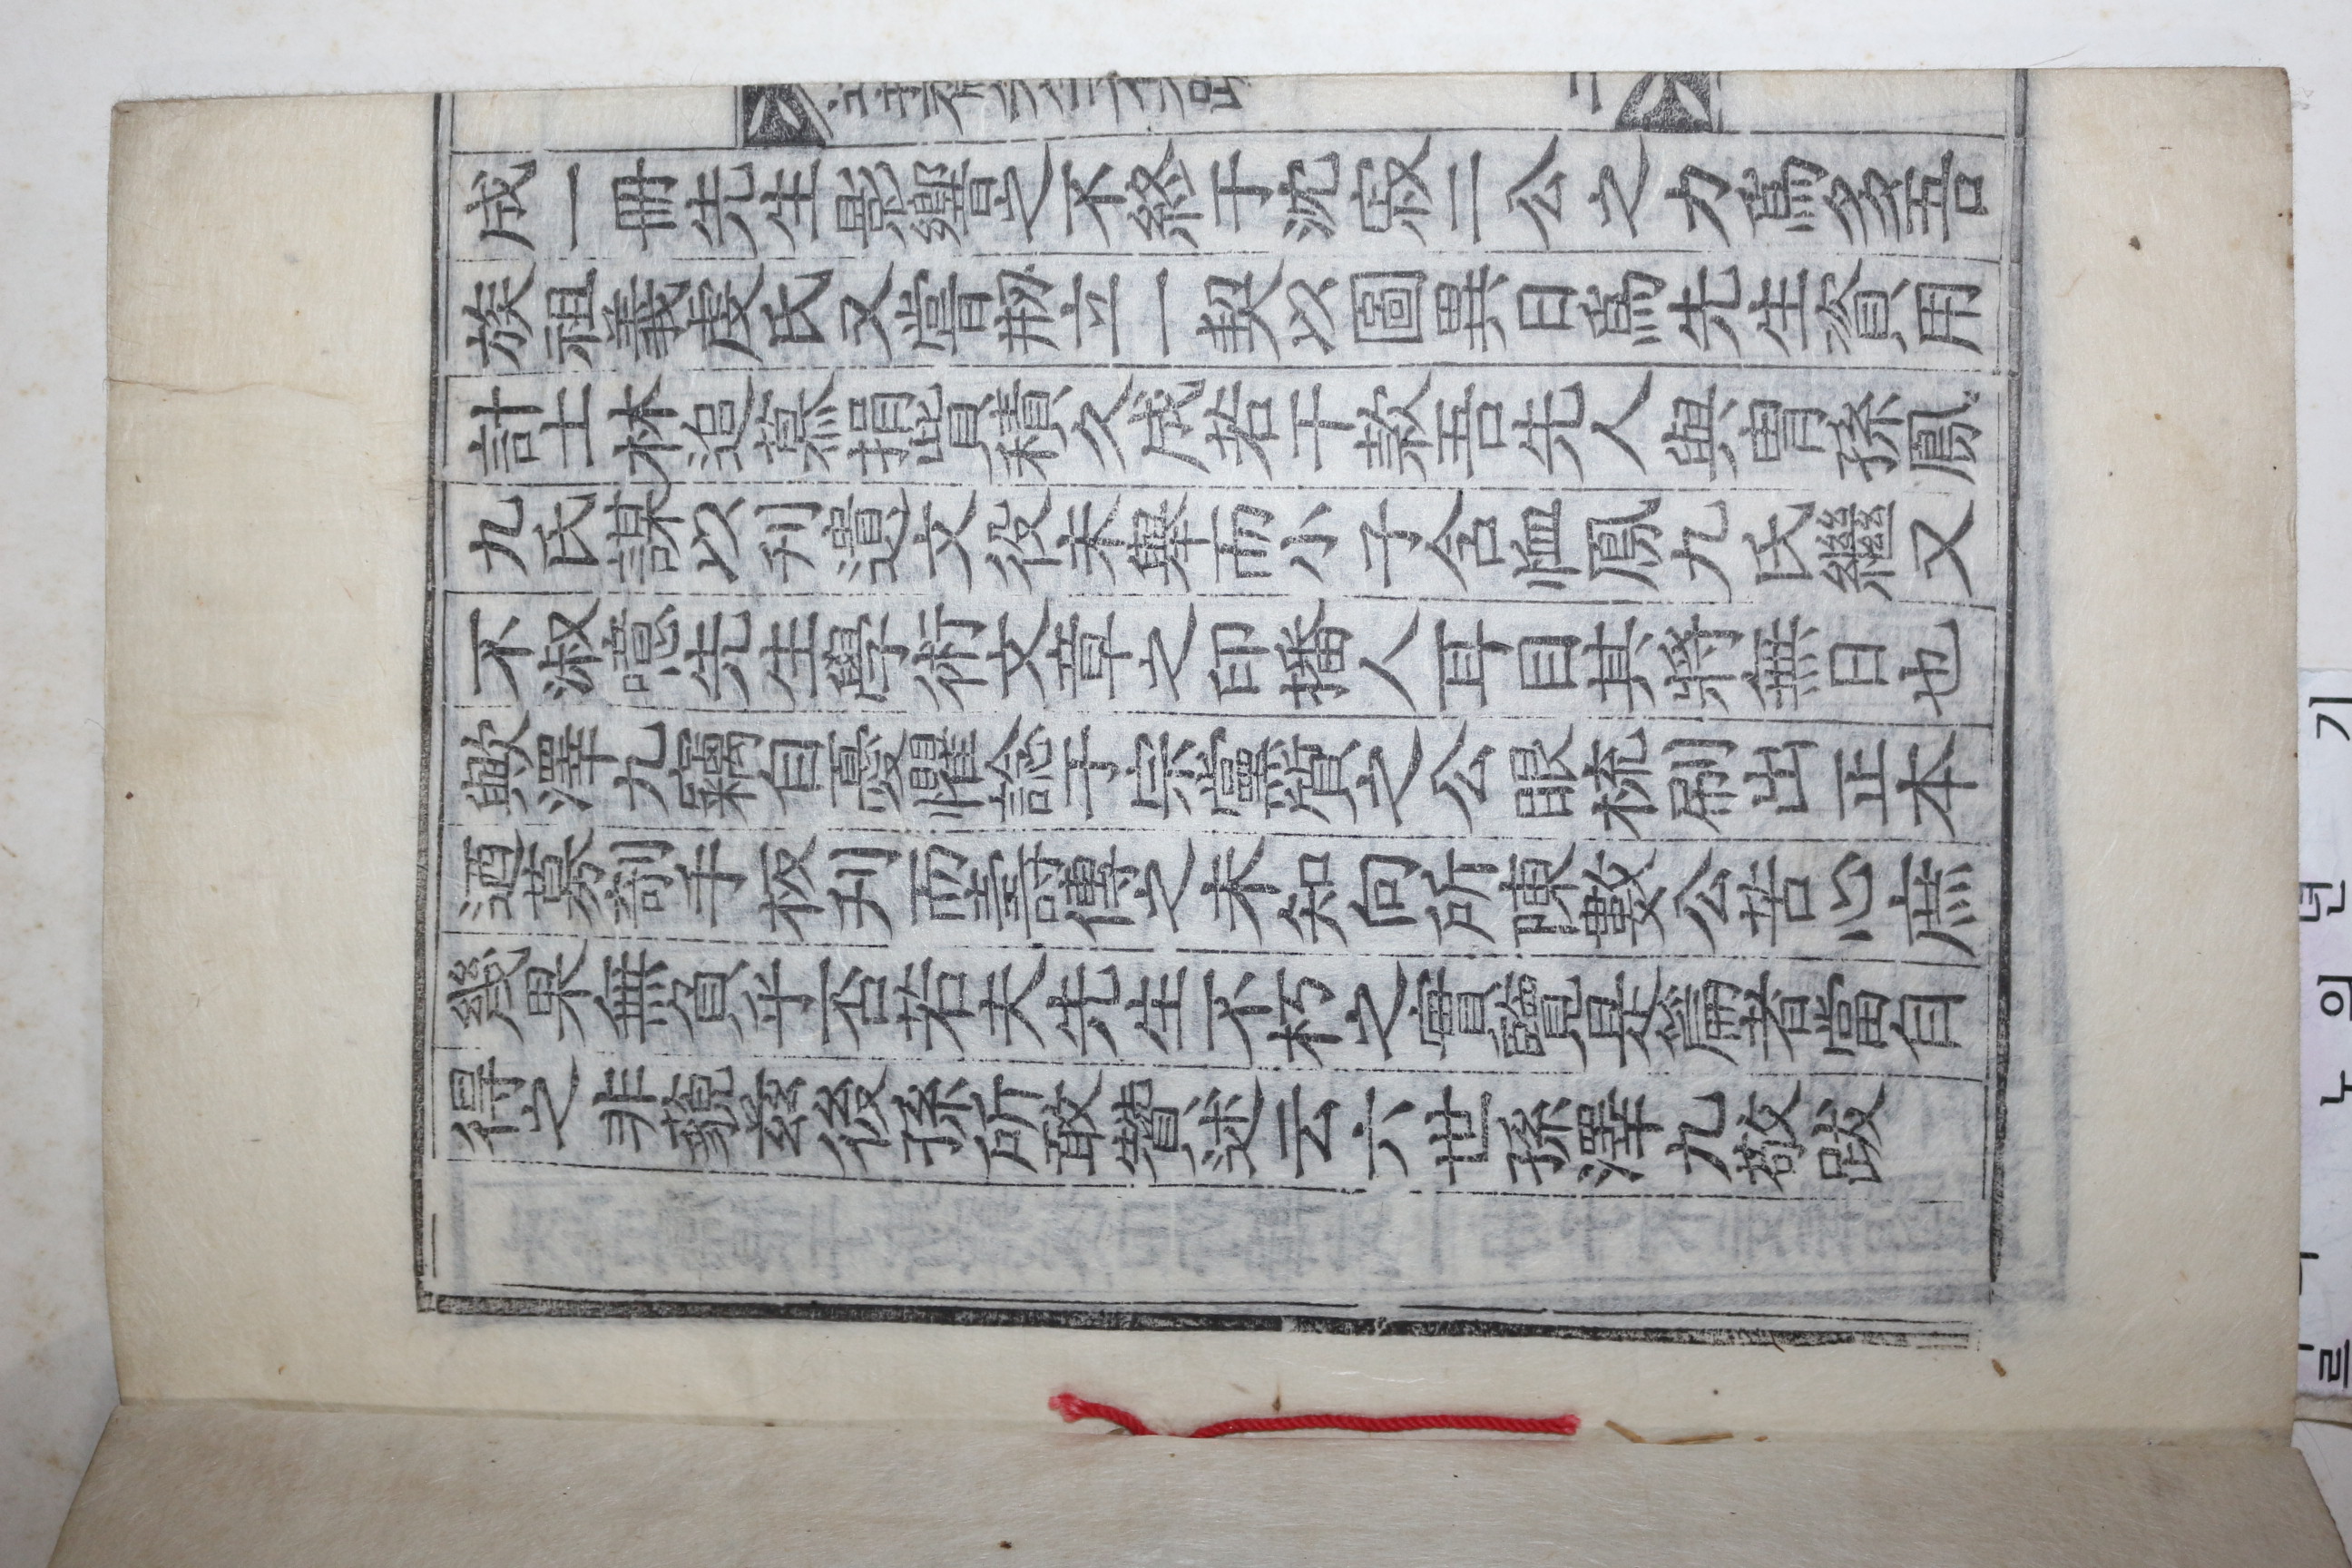 成一冊先生影響之不終于沈寂二公之力爲多吾
族祖義虔氏又嘗刱立一契以圖異日爲先生資用
計士林追慕捐貲積久成若干款吾先人與胄孫鳳
九氏謀以刊遺文役未舉而小子含恤鳳九氏繼又
不淑噫先生學術文章之印播人耳目其將無日也
歟澤九竊自憂懼諗于宗黨質之公眼梳刷出正本
迺募剞手板刋而壽傳之未知向所陳數公苦心庶
幾果無負乎否若夫先生不朽之實覽是篇者當自
得之非藐玆後孫所敢贊述云六世孫澤九敬跋
二
르
노
의
년
기